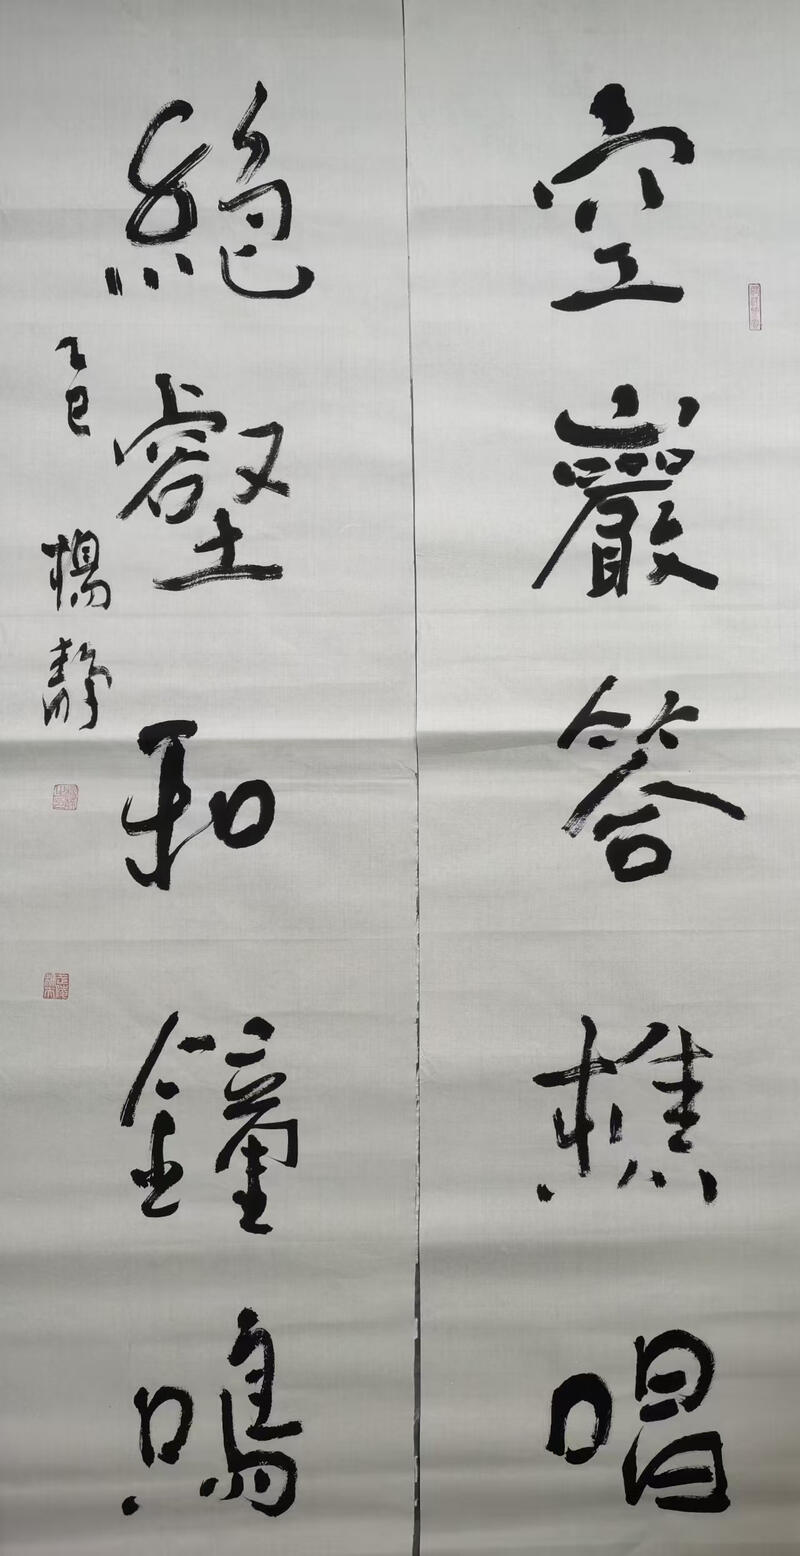 空巖答樵唱
絕壑和鐘鳴
乙巳 楊靜